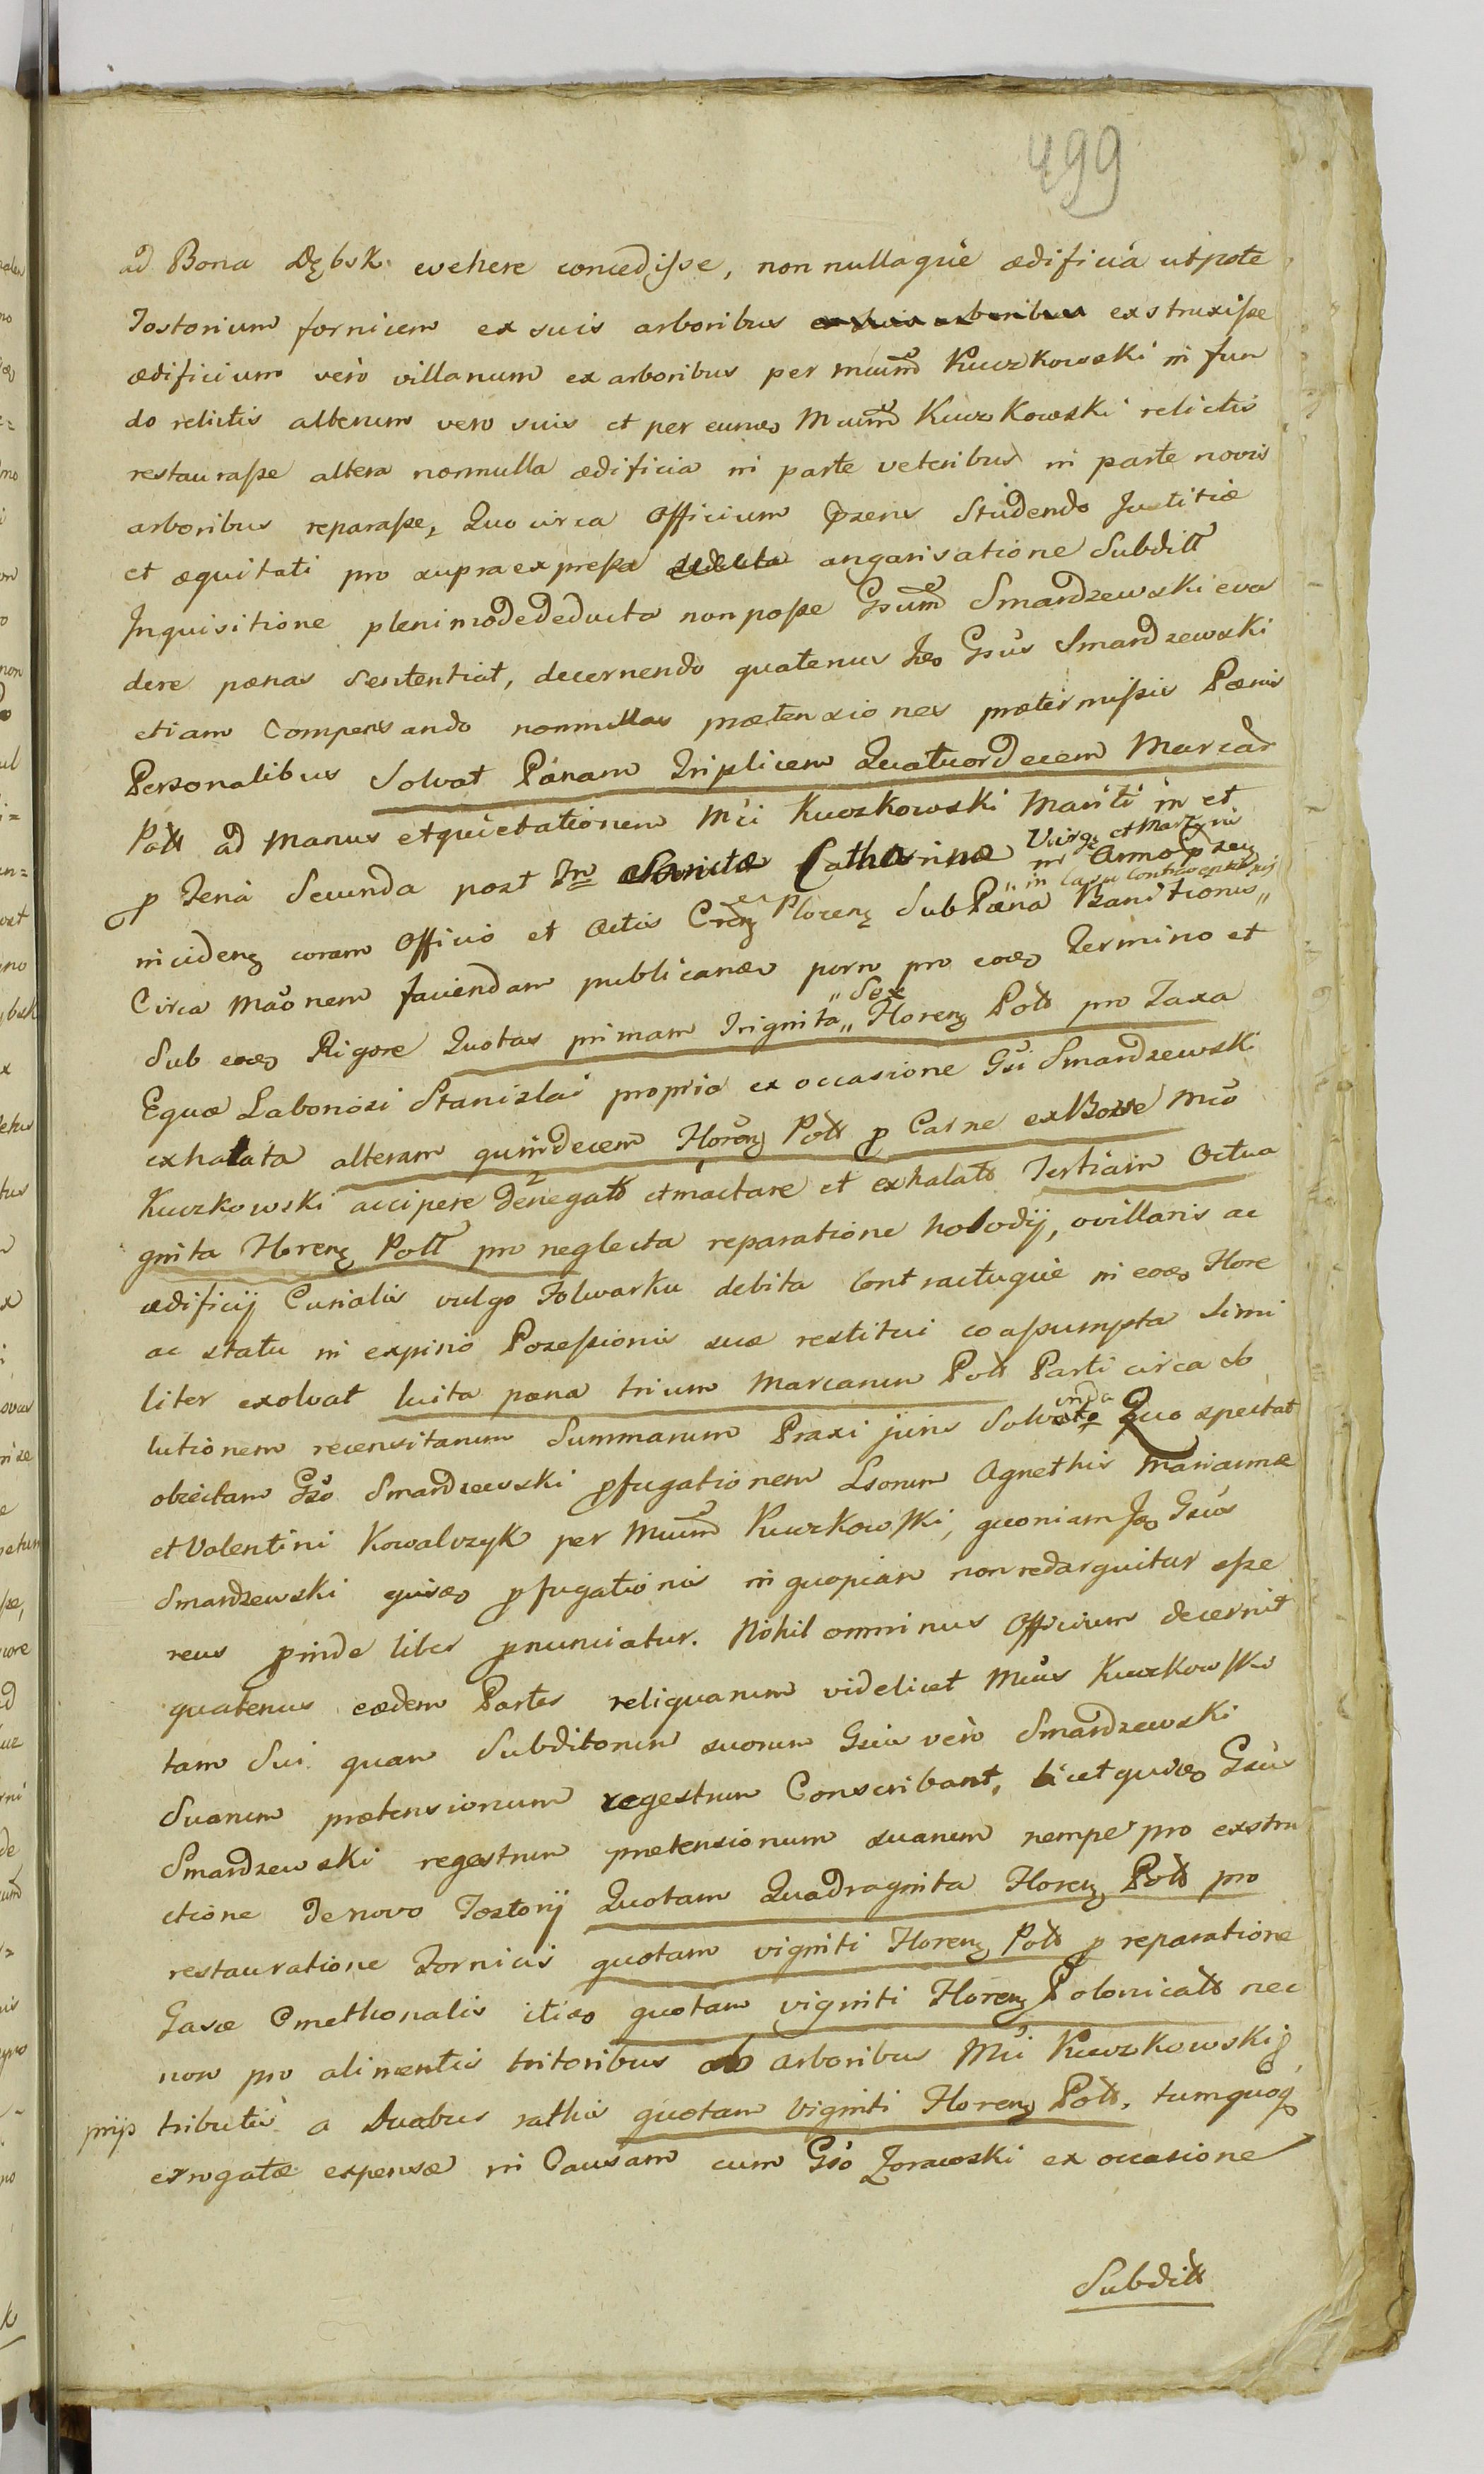 499
ad Bona Dębsk evehere concedisse, non nullaque ædificia utpote
Tostorium fornicem ex suis arboribus ex suis arboribus exstruxisse
ædificium vero villanum ex arboribus per Mcum Kuczkowski in fun
do relictis alterum vero suis et per eund Mcum Kuczkowski relictis
restaurasse altera nonnulla ædificia in parte veteribus in parte novis
arboribus reparasse, Quo circa Officium Præns Studendo Justitiæ
et æquitati pro supra expressa angarisatione Subditt
Inquisitione plenimode deducta non posse Gsum Smardzewski eva
dere pœnas Sententiat, decernendo quatenus Gsus Smardzewski
etiam Compensando nonnullas prætensiones prætermissis Pœnis
Personalibus Solvat Pœnam Triplicem Quatuordecem Marcar
Poll ad Manus et quietationem Mci Kuczkowski Mariti in et
p feria Secunda post Sanctæ Catharinæ Virg et Martyris in Anno præn
incideng coram Officio et Actis Ploceng Sub Pœna Banitionis
in casu Contraventionis
Circa Maonem faciendam publicandæ porro pro eod Termino et
Sub eod Rigore Quotas primam Triginta „Sex„ Floreng Poll pro Taxa
Equæ Laboriosi Stanislai propria ex occasione Gsi Smardzewski
exhalata alteram quindecem Floreng Poll p Carne ex Bove Mco
Kuczkowski accipere denegat et mactare et exhalat Tertiam Octua
ginta Floreng Poll pro neglecta reparatione holodij, ovillaris ac
ædificij Curialis vulgo Folwarku debita Contractuque in eod Flore
ac statu in expirio Possessionis suæ restitui coassumpta simi
liter exolvat luita pœna trium Marcarum Poll Parti circa ob
lutionem recensitarum Summarum Praxi juris Solvenda Quo spectat
objectam Gso Smardzewski pfugationem Lsorum Agnethis Mariannæ
et Valentini Kowalczyk per Mcum Kuczkowski, quoniam Gsus
Smardzewski ejusd pfugationis in quopiam non redarguitur esse
reus pinde liber pnunciatur. Nihilominus Officium decernit
quatenus eædem Partes reliquarum videlicet Mcus Kuczkowski
tam Sui quam Subditorum suorum Gsus vero Smardzewski
Suarum prætensionum regestrum Conscribant, licet quid Gsus
Smardzewski regestrum prætensionum suarum nempe pro exstru
ctione denovo Tostorij Quotam Quadraginta Floreng Poll pro
restauratione Fornicis quotam viginti Floreng Poll p reparatione
Casæ Cmethonalis itid quotam viginti Floreng Polonicall nec
non pro alimentis tritoribus ab arboribus Mci Kuczkowski p
prijs tributis a Duabus rathis quotam Viginti Floreng Poll, tumquoq
errogatæ expensæ in Causam cum Gso Zorawski ex occasione
Subditt